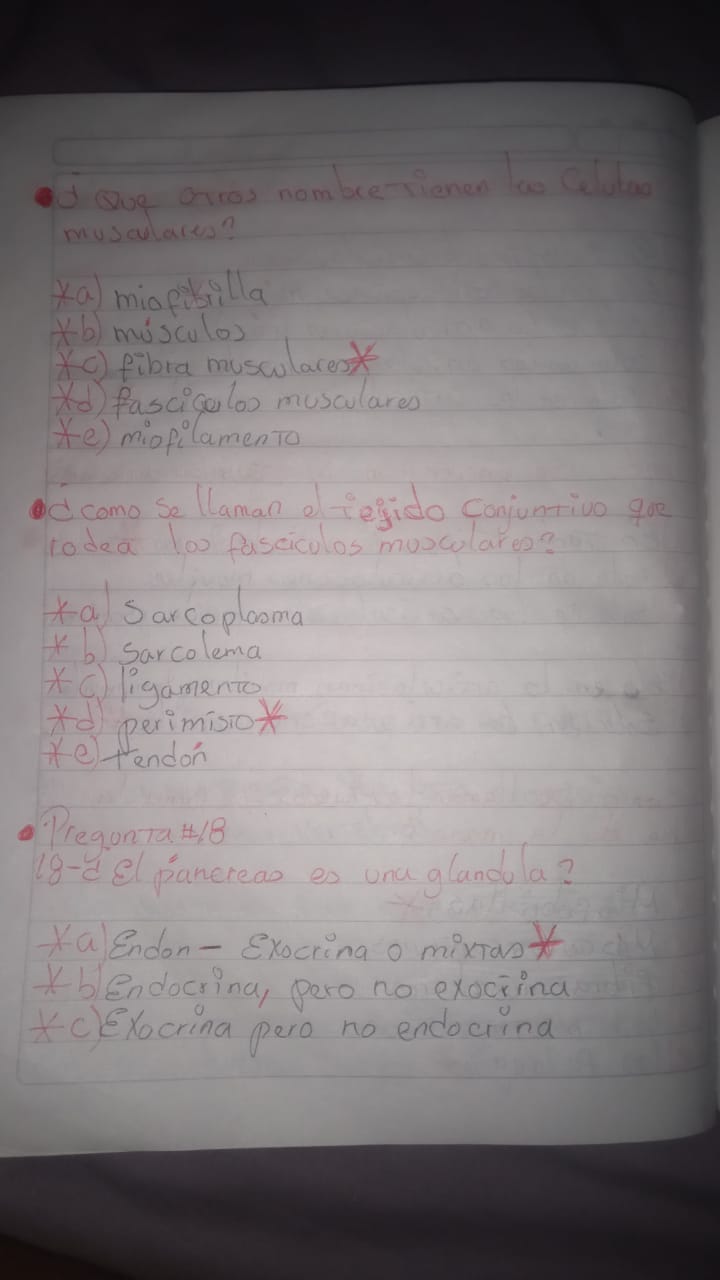 ¿Que otros nombre tienen las celulas
musculares?
*a) miofibrilla
*b) músculos
*c) fibra musculares*
*d) fascículos musculares
*e) miofilamento
¿como se llaman el tejido conjuntivo que
rodea los fasciculos musculares?
*a) Sarcoplasma
*b) Sarcolema
*c) ligamento
*d) perimisio*
*e) tendón
Pregunta #18
18-¿El páncreas es una glandula?
*a) Endon - Exocrina o mixtas*
*b) Endocrina, pero no exocrina
*c) Exocrina pero no endocrina